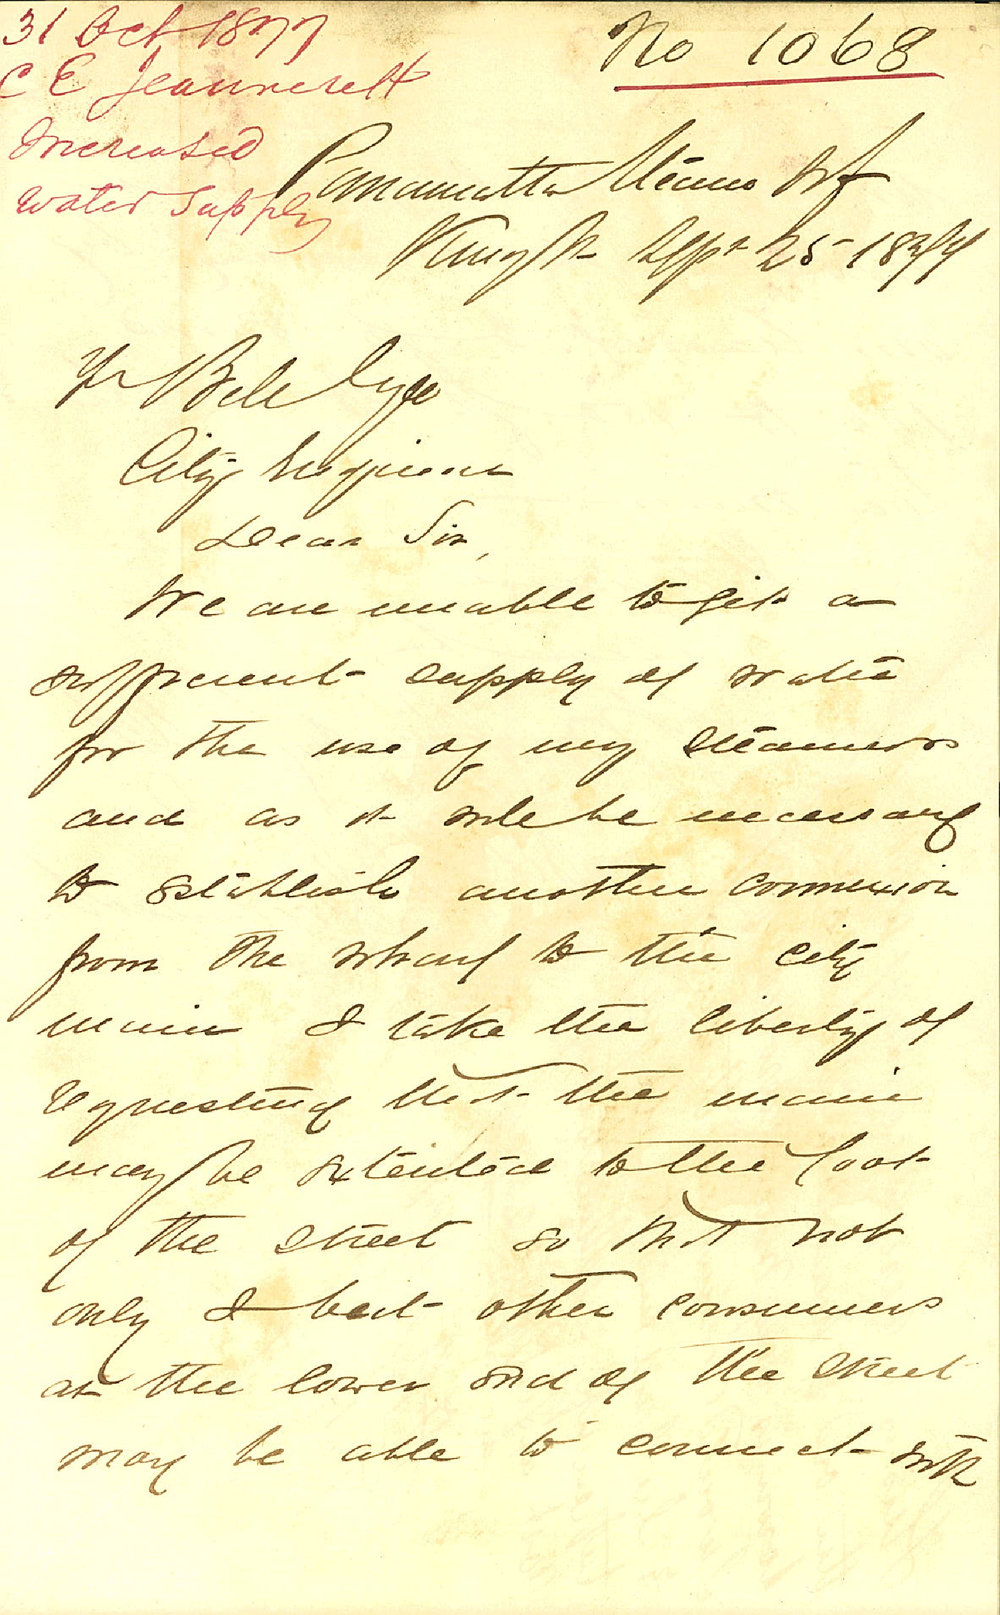 31 Oct 1877
C E Jeanneret
Increased
Water Supply
No 1068
Parramatta Steamer Wf
King St Sept 25 1877
Bell Esq
City Engineer
Dear Sir,
We are unable to get a
sufficient supply of water
for the use of my Steamers
and as it will be necessary
to establish another connexion
from the wharf to the city
main I take the liberty of
requesting that the main
may be extended to the foot
of the Street so that not
only I but other consumers
at the lower end of the Street
may be able to connect with